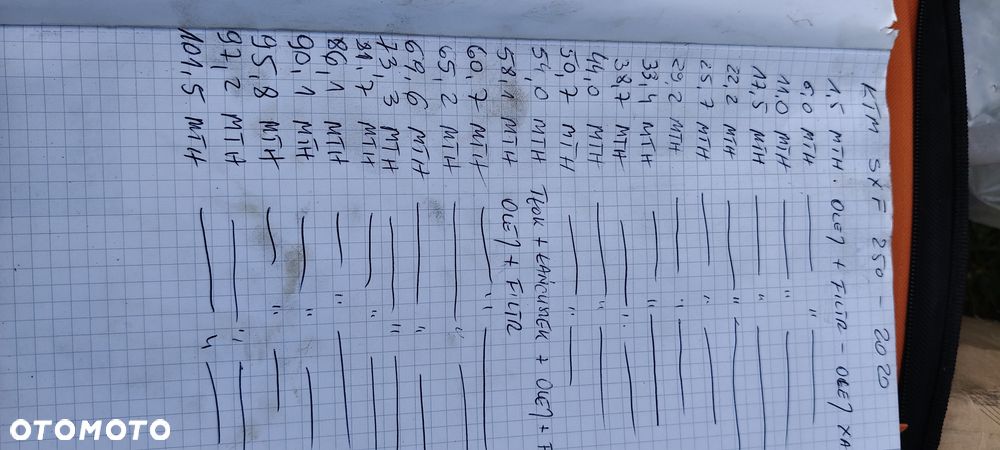 KTM SXF 250 - 2020
1,5 MTH. OLEJ + FILTR - OLEJ XA
6,0 MTH — " —
11,0 MTH — " —
17,5 MTH — " —
22,2 MTH — " —
25,7 MTH — " —
29,2 MTH — " —
33,4 MTH — " —
38,7 MTH — " —
44,0 MTH — " —
50,7 MTH — " —
54,0 MTH TŁOK + ŁAŃCUSZEK + OLEJ + F
58,1 MTH OLEJ + FILTR
60,7 MTH — " —
65,2 MTH — " —
69,6 MTH — " —
73,3 MTH — " —
81,7 MTH — " —
86,1 MTH — " —
90,1 MTH — " —
95,8 MTH — " —
97,2 MTH — " —
101,5 MTH — " —
OTOMOTO